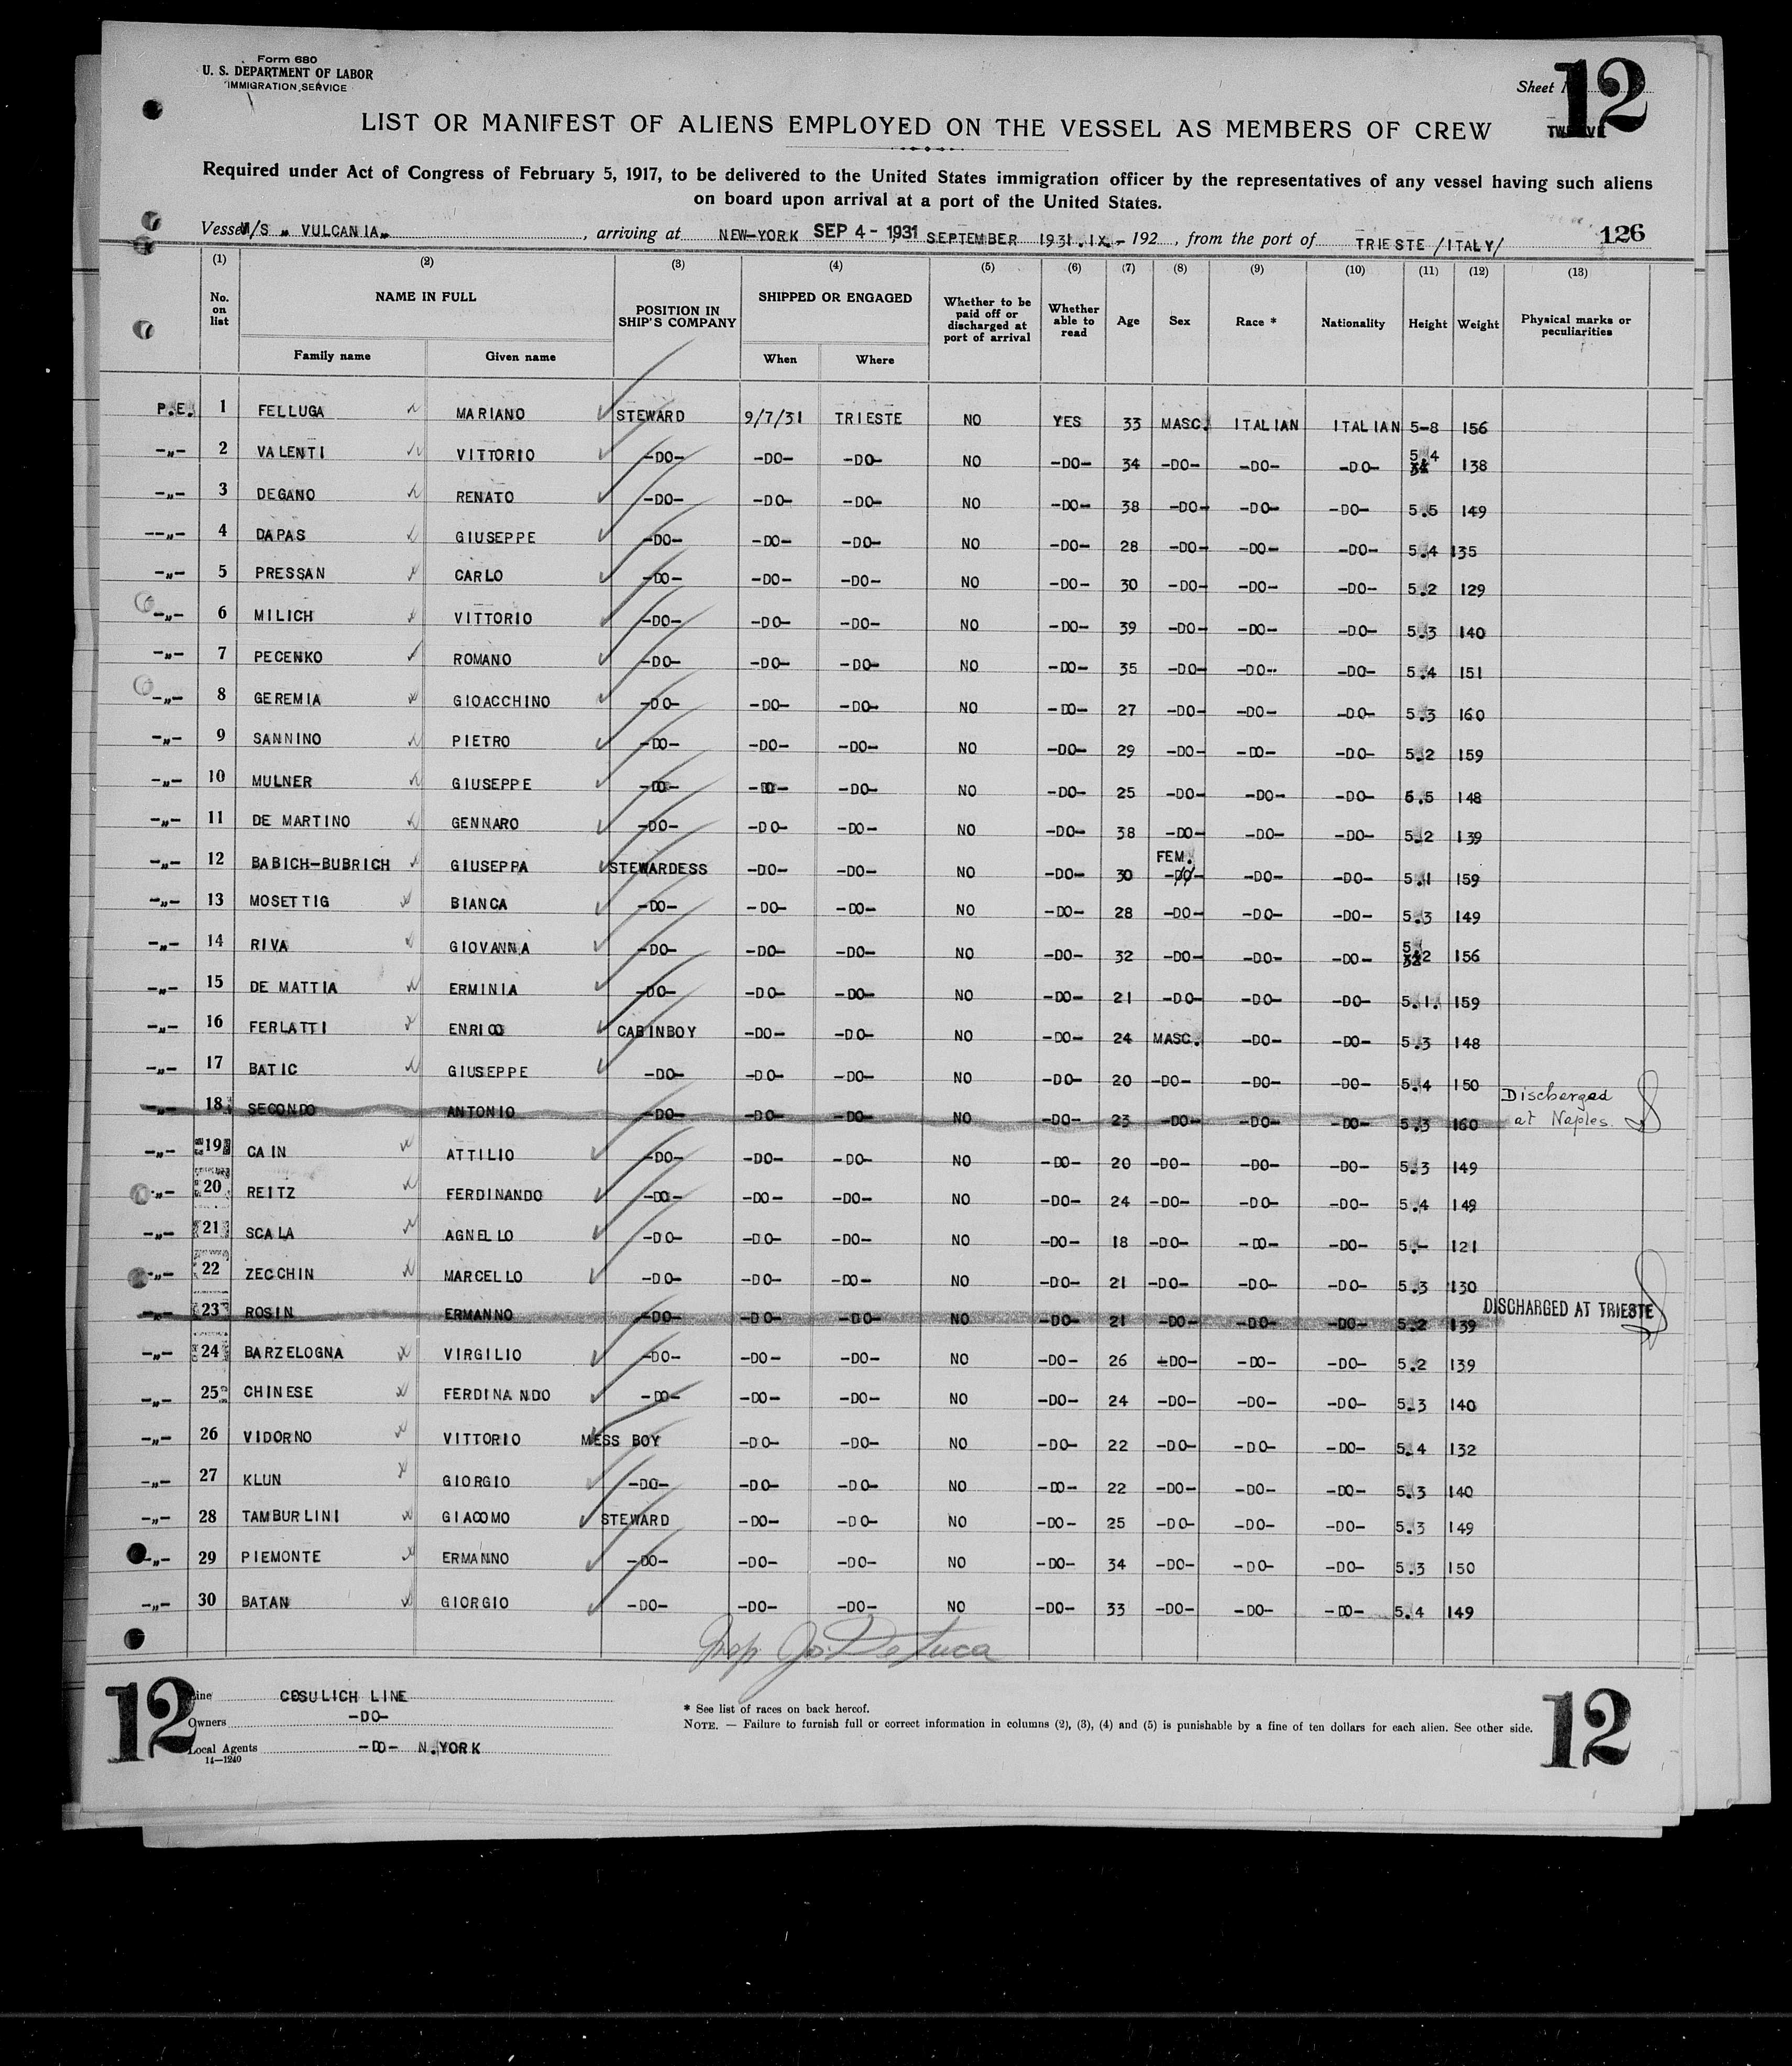 Form 680
U. S. DEPARTMENT OF LABOR
IMMIGRATION SERVICE
Sheet
12
LIST OR MANIFEST OF ALIENS EMPLOYED ON THE VESSEL AS MEMBERS OF CREW
Required under Act of Congress of February 5, 1917, to be delivered to the United States immigration officer by the representatives of any vessel having such aliens
on board upon arrival at a port of the United States.
Vessel M/S „ VULCANIA„ , arriving at NEW-YORK SEP 4 - 1931 SEPTEMBER 1931.IX.- 192 , from the port of TRIESTE /ITALY/ 126
(1) (2) (3) (4) (5) (6) (7) (8) (9) (10) (11) (12) (13)
No. on list NAME IN FULL Family name Given name POSITION IN SHIP'S COMPANY SHIPPED OR ENGAGED When Where Whether to be paid off or discharged at port of arrival Whether able to read Age Sex Race * Nationality Height Weight Physical marks or peculiarities
P.E. 1 FELLUGA MARIANO STEWARD 9/7/31 TRIESTE NO YES 33 MASC. ITALIAN ITALIAN 5-8 156
-„- 2 VALENTI VITTORIO -DO- -DO- -DO- NO -DO- 34 -DO- -DO- -DO- 5 4 138
-„- 3 DEGANO RENATO -DO- -DO- -DO- NO -DO- 38 -DO- -DO- -DO- 5.5 149
--„- 4 DAPAS GIUSEPPE -DO- -DO- -DO- NO -DO- 28 -DO- -DO- -DO- 5.4 135
-„- 5 PRESSAN CARLO -DO- -DO- -DO- NO -DO- 30 -DO- -DO- -DO- 5.2 129
-„- 6 MILICH VITTORIO -DO- -DO- -DO- NO -DO- 39 -DO- -DO- -DO- 5.3 140
-„- 7 PECENKO ROMANO -DO- -DO- -DO- NO -DO- 35 -DO- -DO- -DO- 5.4 151
-„- 8 GEREMIA GIOACCHINO -DO- -DO- -DO- NO -DO- 27 -DO- -DO- -DO- 5.3 160
-„- 9 SANNINO PIETRO -DO- -DO- -DO- NO -DO- 29 -DO- -DO- -DO- 5.2 159
-„- 10 MULNER GIUSEPPE -DO- -DO- -DO- NO -DO- 25 -DO- -DO- -DO- 5.5 148
-„- 11 DE MARTINO GENNARO -DO- -DO- -DO- NO -DO- 38 -DO- -DO- -DO- 5.2 139
-„- 12 BABICH-BUBRICH GIUSEPPA STEWARDESS -DO- -DO- NO -DO- 30 FEM. -DO- -DO- -DO- 5.1 159
-„- 13 MOSETTIG BIANCA -DO- -DO- -DO- NO -DO- 28 -DO- -DO- -DO- 5.3 149
-„- 14 RIVA GIOVANNA -DO- -DO- -DO- NO -DO- 32 -DO- -DO- -DO- 5 2 156
-„- 15 DE MATTIA ERMINIA -DO- -DO- -DO- NO -DO- 21 -DO- -DO- -DO- 5.1. 159
-„- 16 FERLATTI ENRICO CABINBOY -DO- -DO- NO -DO- 24 MASC. -DO- -DO- 5.3 148
-„- 17 BATIC GIUSEPPE -DO- -DO- -DO- NO -DO- 20 -DO- -DO- -DO- 5.4 150
-„- 18 SECONDO ANTONIO -DO- -DO- -DO- NO -DO- 23 -DO- -DO- -DO- 5.3 160 Discharged at Naples.
-„- 19 CAIN ATTILIO -DO- -DO- -DO- NO -DO- 20 -DO- -DO- -DO- 5.3 149
-„- 20 REITZ FERDINANDO -DO- -DO- -DO- NO -DO- 24 -DO- -DO- -DO- 5.4 149
-„- 21 SCALA AGNELLO -DO- -DO- -DO- NO -DO- 18 -DO- -DO- -DO- 5.- 121
-„- 22 ZECCHIN MARCELLO -DO- -DO- -DO- NO -DO- 21 -DO- -DO- -DO- 5.3 130
-„- 23 ROSIN ERMANNO -DO- -DO- -DO- NO -DO- 21 -DO- -DO- -DO- 5.2 139 DISCHARGED AT TRIESTE
-„- 24 BARZELOGNA VIRGILIO -DO- -DO- -DO- NO -DO- 26 -DO- -DO- -DO- 5.2 139
-„- 25 CHINESE FERDINANDO -DO- -DO- -DO- NO -DO- 24 -DO- -DO- -DO- 5.3 140
-„- 26 VIDORNO VITTORIO MESS BOY -DO- -DO- NO -DO- 22 -DO- -DO- -DO- 5.4 132
-„- 27 KLUN GIORGIO -DO- -DO- -DO- NO -DO- 22 -DO- -DO- -DO- 5.3 140
-„- 28 TAMBURLINI GIACOMO STEWARD -DO- -DO- NO -DO- 25 -DO- -DO- -DO- 5.3 149
-„- 29 PIEMONTE ERMANNO -DO- -DO- -DO- NO -DO- 34 -DO- -DO- -DO- 5.3 150
-„- 30 BATAN GIORGIO -DO- -DO- -DO- NO -DO- 33 -DO- -DO- -DO- 5.4 149
Insp. Jo. DeLuca
12
Line COSULICH LINE
Owners -DO-
Local Agents -DO- N.YORK
14—1240
* See list of races on back hereof.
NOTE. — Failure to furnish full or correct information in columns (2), (3), (4) and (5) is punishable by a fine of ten dollars for each alien. See other side.
12